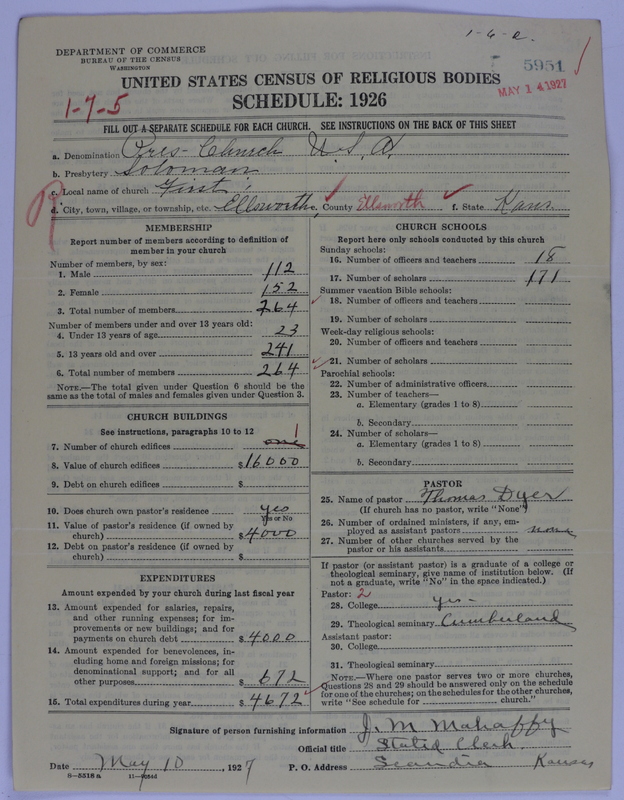 1-6-a.
DEPARTMENT OF COMMERCE
BUREAU OF THE CENSUS
WASHINGTON
5951
MAY 14 1927
UNITED STATES CENSUS OF RELIGIOUS BODIES
1-7-5
SCHEDULE: 1926
FILL OUT A SEPARATE SCHEDULE FOR EACH CHURCH. SEE INSTRUCTIONS ON THE BACK OF THIS SHEET
a. Denomination Pres- Church U.S.A.
b. Presbytery Solomon
c. Local name of church First
d. City, town, village, or township, etc. Ellsworth e. County Ellsworth f. State Kans
MEMBERSHIP
Report number of members according to definition of
member in your church
Number of members, by sex:
1. Male 112
2. Female 152
3. Total number of members 264
Number of members under and over 13 years old:
4. Under 13 years of age 23
5. 13 years old and over 241
6. Total number of members 264
NOTE.—The total given under Question 6 should be
the same as the total of males and females given under Question 3.
CHURCH BUILDINGS
See instructions, paragraphs 10 to 12
7. Number of church edifices one 1
8. Value of church edifices $16000
9. Debt on church edifices $
10. Does church own pastor's residence yes
Yes or No
11. Value of pastor's residence (if owned by
church) $4000
12. Debt on pastor's residence (if owned by
church) $
EXPENDITURES
Amount expended by your church during last fiscal year
13. Amount expended for salaries, repairs,
and other running expenses; for im-
provements or new buildings; and for
payments on church debt $4000
14. Amount expended for benevolences, in-
cluding home and foreign missions; for
denominational support; and for all
other purposes $672
15. Total expenditures during year $4672
CHURCH SCHOOLS
Report here only schools conducted by this church
Sunday schools:
16. Number of officers and teachers 18
17. Number of scholars 171
Summer vacation Bible schools:
18. Number of officers and teachers
19. Number of scholars
Week-day religious schools:
20. Number of officers and teachers
21. Number of scholars
Parochial schools:
22. Number of administrative officers
23. Number of teachers—
a. Elementary (grades 1 to 8)
b. Secondary
24. Number of scholars—
a. Elementary (grades 1 to 8)
b. Secondary
PASTOR
25. Name of pastor Thomas Dyer
(If church has no pastor, write "None")
26. Number of ordained ministers, if any, em-
ployed as assistant pastors none
27. Number of other churches served by the
pastor or his assistants
If pastor (or assistant pastor) is a graduate of a college or
theological seminary, give name of institution below. (If
not a graduate, write "No" in the space indicated.)
Pastor: 2
28. College yes-
29. Theological seminary Cumberland
Assistant pastor:
30. College
31. Theological seminary
NOTE.—Where one pastor serves two or more churches,
Questions 28 and 29 should be answered only on the schedule
for one of the churches; on the schedules for the other churches,
write "See schedule for church."
Signature of person furnishing information J. M. Mahaffy
Official title Stated Clerk
Date May 10, 1927 P. O. Address Scandia Kansas
8-5518 a